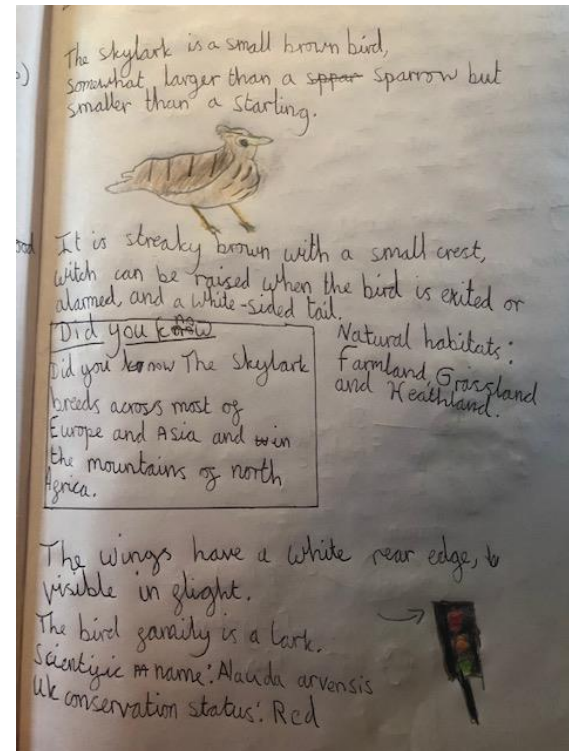 The skylark is a small brown bird,
somewhat larger than a sppar sparrow but
smaller than a starling.
It is streaky brown with a small crest,
witch can be raised when the bird is exited or
alarmed, and a white-sided tail.
Did you know
Did you know The Skylark
breeds across most of
Europe and Asia and in
the mountains of north
Africa.
Natural habitats:
Farmland, Grassland
and Heathland.
The wings have a white rear edge,
visible in flight.
The bird family is a lark.
Scientific name: Alauda arvensis
Uk conservation status: Red